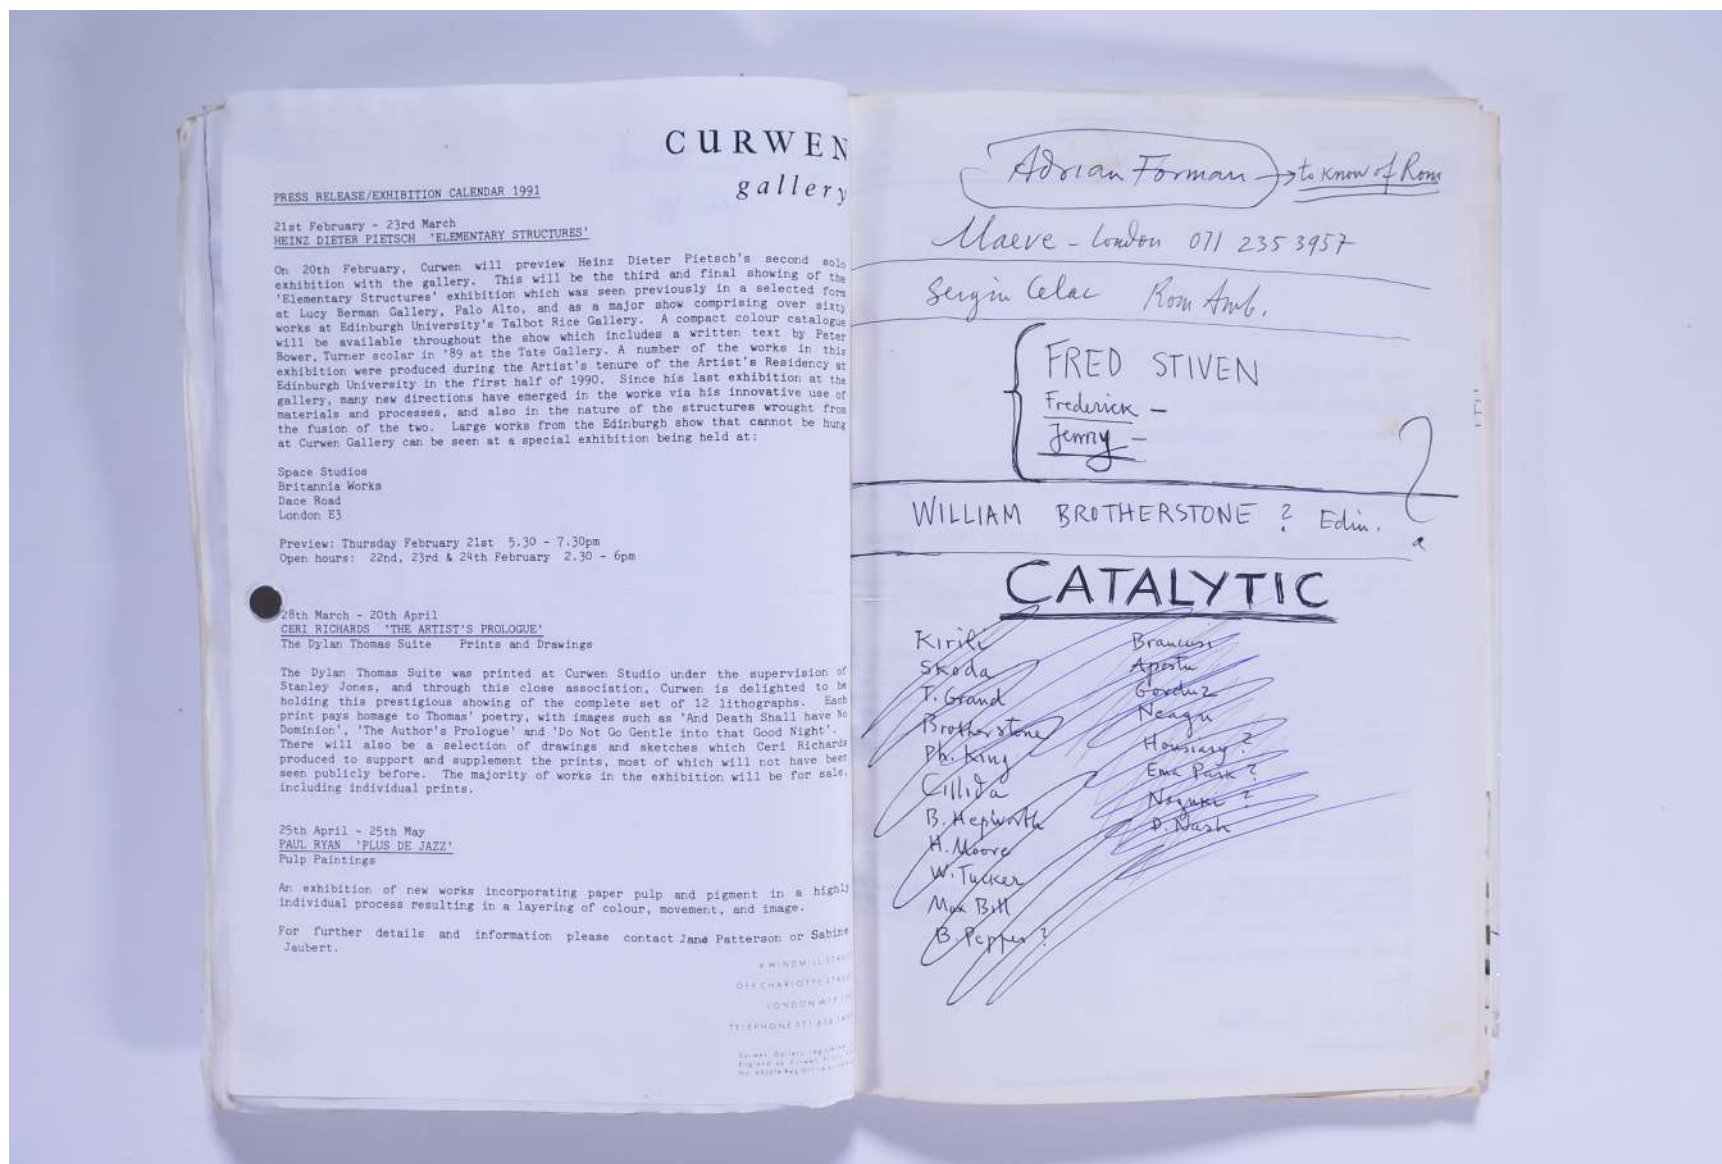 CURWEN
gallery
PRESS RELEASE/EXHIBITION CALENDAR 1991
21st February - 23rd March
HEINZ DIETER PIETSCH 'ELEMENTARY STRUCTURES'
On 20th February, Curwen will preview Heinz Dieter Pietsch's second solo
exhibition with the gallery. This will be the third and final showing of the
'Elementary Structures' exhibition which was seen previously in a selected form
at Lucy Berman Gallery, Palo Alto, and as a major show comprising over sixty
works at Edinburgh University's Talbot Rice Gallery. A compact colour catalogue
will be available throughout the show which includes a written text by Peter
Bower, Turner scolar in '89 at the Tate Gallery. A number of the works in this
exhibition were produced during the Artist's tenure of the Artist's Residency at
Edinburgh University in the first half of 1990. Since his last exhibition at the
gallery, many new directions have emerged in the works via his innovative use of
materials and processes, and also in the nature of the structures wrought from
the fusion of the two. Large works from the Edinburgh show that cannot be hung
at Curwen Gallery can be seen at a special exhibition being held at:
Space Studios
Britannia Works
Dace Road
London E3
Preview: Thursday February 21st 5.30 - 7.30pm
Open hours: 22nd, 23rd & 24th February 2.30 - 6pm
28th March - 20th April
CERI RICHARDS 'THE ARTIST'S PROLOGUE'
The Dylan Thomas Suite Prints and Drawings
The Dylan Thomas Suite was printed at Curwen Studio under the supervision of
Stanley Jones, and through this close association, Curwen is delighted to be
holding this prestigious showing of the complete set of 12 lithographs. Each
print pays homage to Thomas' poetry, with images such as 'And Death Shall have No
Dominion', 'The Author's Prologue' and 'Do Not Go Gentle into that Good Night'.
There will also be a selection of drawings and sketches which Ceri Richards
produced to support and supplement the prints, most of which will not have been
seen publicly before. The majority of works in the exhibition will be for sale,
including individual prints.
25th April - 25th May
PAUL RYAN 'PLUS DE JAZZ'
Pulp Paintings
An exhibition of new works incorporating paper pulp and pigment in a highly
individual process resulting in a layering of colour, movement, and image.
For further details and information please contact Jane Patterson or Sabine
Jaubert.
WINDMILL
OFF CHARLOTTE
LONDON
TELEPHONE 071
Adrian Forman → to know of Rom
Maeve - London 071 235 3957
Sergiu Celac Rom Amb.
FRED STIVEN
Frederick -
Jenny -
WILLIAM BROTHERSTONE ? Edin.
CATALYTIC
Kirili
Skoda
T. Grand
Brotherstone
Ph. King
Cillida
B. Hepworth
H. Moore
W. Tucker
Max Bill
B. Pepper ?
Brancusi
Apostu
Gorduz
Neagu
Housiary ?
Ema Park ?
?
D. Nash